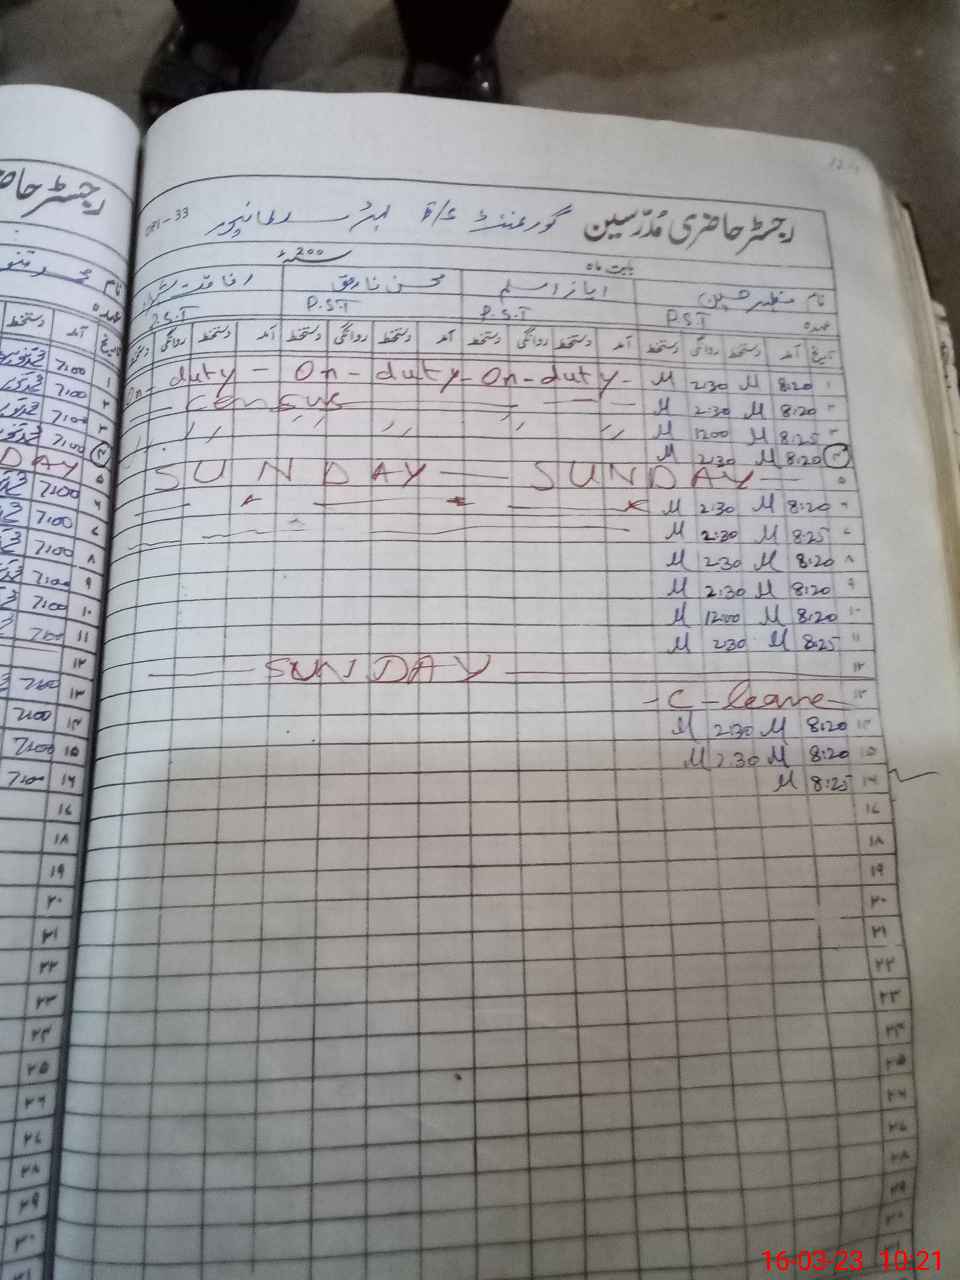 رجسٹر حاضری مُدرّسین گورنمنٹ
بابت ماہ 200
نام مظہر حسین ایاز اسلم محسن فاروق
عہدہ P.S.T P.S.T P.S.T P.S.T
تاریخ آمد دستخط روانگی دستخط آمد دستخط روانگی دستخط آمد دستخط روانگی دستخط آمد دستخط روانگی دستخط
۱ 8:20 M 2:30 M On - duty - On - duty - On - duty -
۲ 8:20 M 2:30 M Census
۳ 8:25 M 1200 M
۴ 8:20 M 2:30 M
۵ SUNDAY — SUNDAY —
۶ 8:20 M 2:30 M
۷ 8:25 M 2:30 M
۸ 8:20 M 2:30 M
۹ 8:20 M 2:30 M
۱۰ 8:20 M 1200 M
۱۱ 8:25 M 2:30 M
۱۲ — SUNDAY —
۱۳ - C - leave -
۱۴ 8:20 M 2:30 M
۱۵ 8:20 M 2:30 M
۱۶ 8:25 M
۱۷
۱۸
۱۹
۲۰
۲۱
۲۲
۲۳
۲۴
۲۵
۲۶
۲۷
۲۸
۲۹
۳۰
رجسٹر
نام
عہدہ
تاریخ آمد دستخط
۱ 7:00
۲ 7:00
۳ 7:00
۴ 7:00
۵ DAY
۶ 7:00
۷ 7:00
۸ 7:00
۹ 7:00
۱۰ 7:00
۱۱ 7:00
۱۲
۱۳ 7:00
۱۴ 7:00
۱۵ 7:00
۱۶ 7:00
۱۷
۱۸
۱۹
۲۰
۲۱
۲۲
۲۳
۲۴
۲۵
۲۶
۲۷
۲۸
۲۹
۳۰
۳۱
16-03-23 10:21